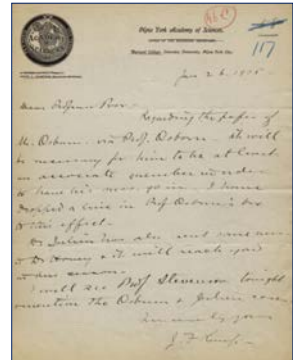 ACADEMY
SCIENCES
New York Academy of Sciences.
117
Jan 26 1905
Dear Professor Poor
Regarding the paper of
Mr. Osburn, via Prof. Osborn - it will
be necessary for him to be at least
an associate member in order
to have his mss. go in. I have
dropped a line in Prof Osborn's box
to this effect.
Dr Julien has also sent some mss.
to Dr Hovey & it will reach you
in due season.
I will see Prof Stevenson tonight
mention the Osburn & Julien cases
Sincerely yours
J. F. Kemp